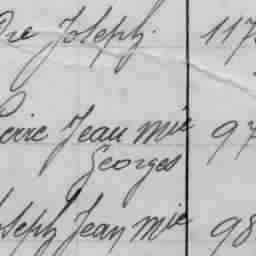 Joseph. 117
Pierre Jean Mie 97
Georges
Joseph Jean Mie 98